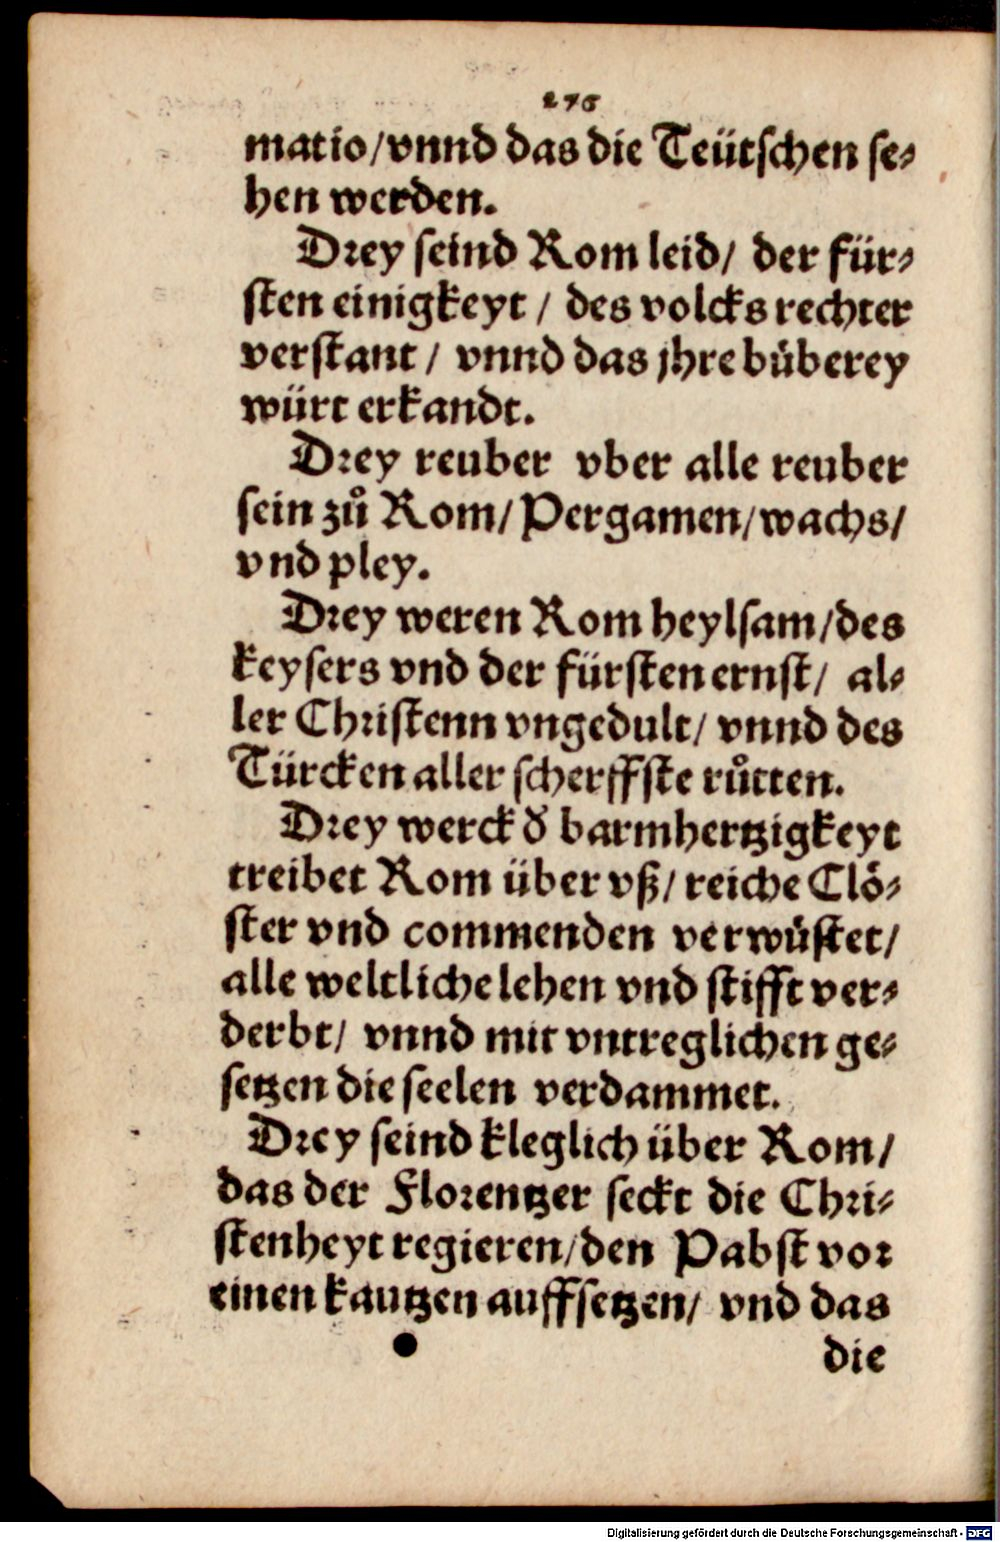 276
matio/vnnd das die Teütschen se⸗
hen werden.
Drey seind Rom leid/ der für⸗
sten einigkeyt / des volcks rechter
verstant / vnnd das jhre bůberey
würt erkandt.
Drey reuber vber alle reuber
sein zů Rom/Pergamen/wachs/
vnd pley.
Drey weren Rom heylsam/des
keysers vnd der fürsten ernst/ al⸗
ler Christenn vngedult/ vnnd des
Türcken aller scherffste růtten.
Drey werck d̕ barmhertzigkeyt
treibet Rom über vß/ reiche Clö⸗
ster vnd commenden verwůstet/
alle weltliche lehen vnd stifft ver⸗
derbt/ vnnd mit vntreglichen ge⸗
setzen die seelen verdammet.
Drey seind kleglich über Rom/
das der Florentzer seckt die Chri⸗
stenheyt regieren/den Pabst vor
einen kautzen auffsetzen/ vnd das
die
Digitalisierung gefördert durch die Deutsche Forschungsgemeinschaft - DFG